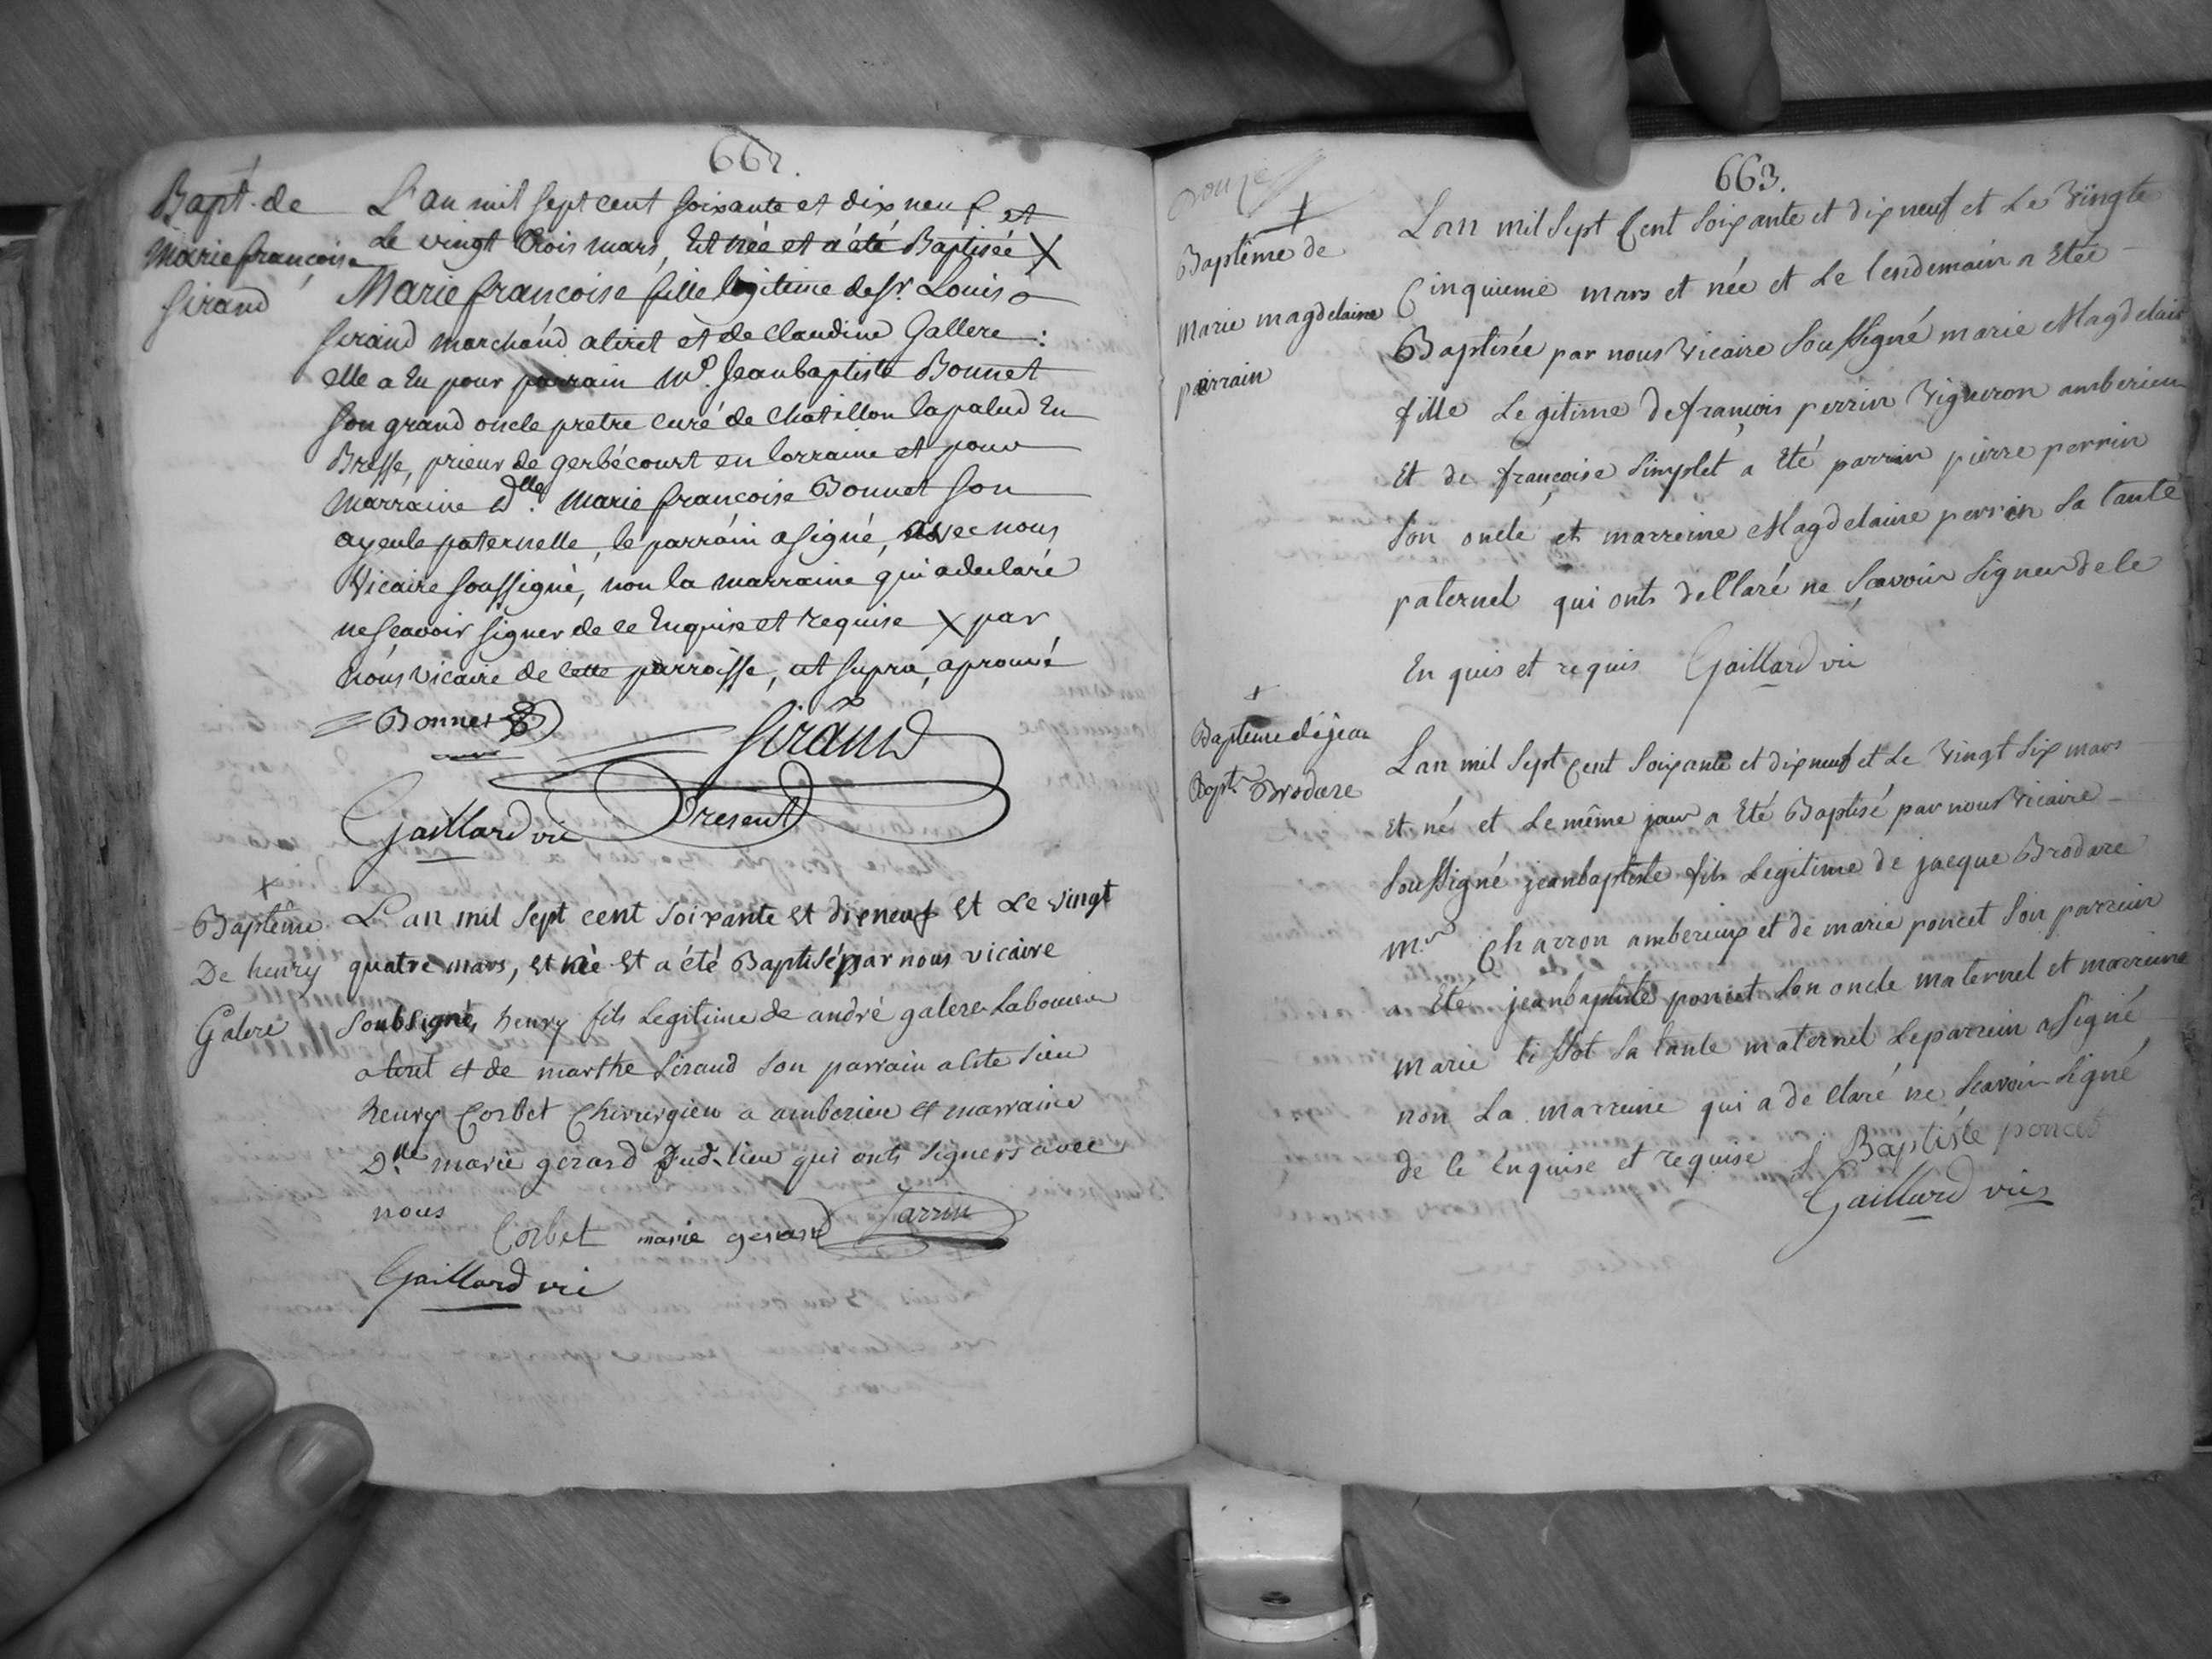 662.
Bapt. de
marie françoise
Siraud
L'an mil sept cent soixante et dix neuf et
Le vingt trois mars, Est née et a été Baptisée X
Marie françoise fille legitime de Sr. Louis
Siraud marchand atiret et de Claudine Gallere :
elle a Eu pour parrain Mr. Jean baptiste Bonnet
son grand oncle pretre curé de Chatillon lapalud En
Bresse, prieur de gerbécourt en lorraine et pour
Marraine dlle. Marie françoise Bonnet son
ayeule paternelle, le parrain a signé, avec nous
Vicaire soussigné, non la marraine qui a declaré
ne sçavoir signer de ce Enquise et requise X par
nous vicaire de cette parroisse, ut supra, aprouvé
Bonnet
Siraud
Gaillard vic
Present
+
Baptême
De henry
Galere
L'an mil sept cent soixante et dixneuf et Le vingt
quatre mars, et née et a été Baptisé par nous vicaire
soubsigné, henry fils Legitime de andré galere Laboureur
atiret et de marthe Siraud son parrain a ete sieu
henry Corbet Chirurgien a amberieu et marraine
Dlle marie gerard dud. lieu qui onts signers avec
nous
Corbet marie gerard Jarrin
Gaillard vic
663.
douze
+
Baptême de
marie magdelaine
perrain
Lan mil sept Cent soixante et dix neuf et Le vingte
Cinquieme mars et née et Le lendemain a Etée
Baptisée par nous vicaire soussigné marie Magdelaine
fille Legitime de françois perrin vigneron amberieu
Et de françoise simplet a Eté parrin pierre perrin
son oncle et marreine Magdelaine perrin sa tante
paternel qui onts dellaré ne sçavoir signer de ce
En quis et requis Gaillard vic
+
Baptême de jean
Bapt. Brodare
Lan mil sept Cent soixante et dix neuf et Le vingt six mars
Et né et Le même jour a Eté Baptisé par nous vicaire
soussigné jeanbaptiste fils Legitime de jacque Brodare
mre Charron amberieux et de marie poncet son parrein
a Eté jeanbaptiste poncet son oncle maternel et marreine
marie tissot sa tante maternel Le parrein a signé
non La marreine qui a declaré ne scavoir signé
de ce Enquise et requise J Baptiste poncet
Gaillard vic